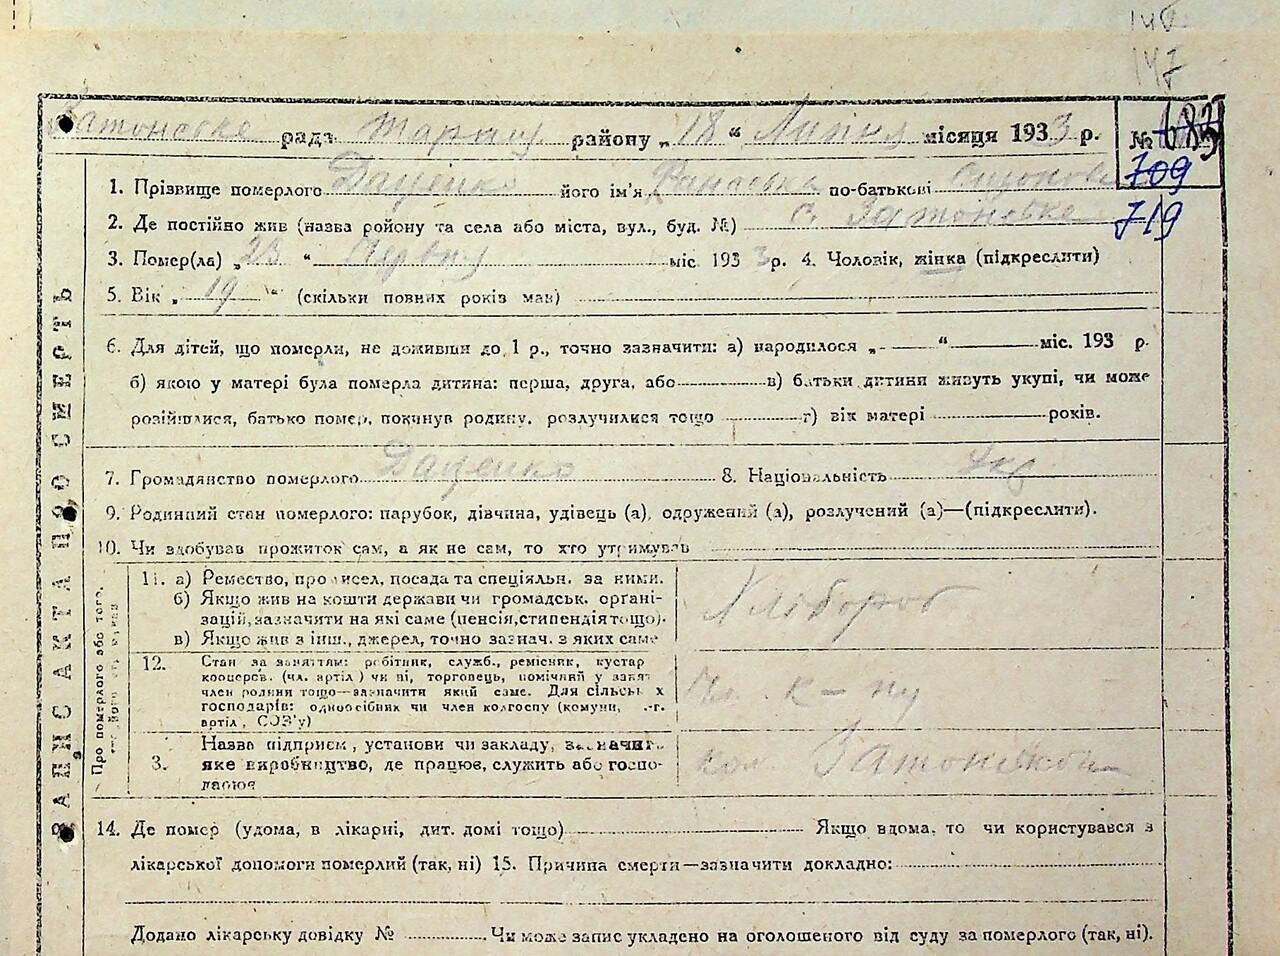 147
рада району „18“ Липня місяця 1933 р. № 683
709
1. Прізвище померлого його ім'я по-батькові
719
2. Де постійно жив (назва району та села або міста, вул., буд. №) с. Затонське
3. Помер(ла) „23“ Червня міс. 1933 р. 4. Чоловік, жінка (підкреслити)
5. Вік „19“ (скільки повних років мав)
6. Для дітей, що померли, не доживши до 1 р., точно зазначити: а) народилося „ “ міс. 193 р.
б) якою у матері була померла дитина: перша, друга, або в) батьки дитини живуть укупі, чи може
розійшлися, батько помер, покинув родину, розлучилися тощо г) вік матері років.
7. Громадянство померлого Даценко 8. Національність Укр
9. Родинний стан померлого: парубок, дівчина, удівець (а), одружений (а), розлучений (а)—(підкреслити).
10. Чи здобував прожиток сам, а як не сам, то хто утримував
ЗАПИС АКТА ПРО СМЕРТЬ
Про померлого або того,
11. а) Ремество, промисел, посада та спеціяльн. за ними.
б) Якщо жив на кошти держави чи громадськ. органі-
зацій, зазначити на які саме (пенсія, стипендія тощо).
в) Якщо жив з інш., джерел, точно зазнач. з яких саме
Хлібороб
12. Стан за заняттям: робітник, служб., ремісник, кустар
кооперов. (чл. артіл.) чи ні, торговець, помічний у занят.
член родини тощо—зазначити який саме. Для сільськ х
господарів: одноосібник чи член колгоспу (комуни, .-г.
артіл., СОЗ'у)
Чл. к-пу
3. Назва підприєм., установи чи закладу, зазначит.
яке виробництво, де працює, служить або госпо-
дарює
14. Де помер (удома, в лікарні, дит. домі тощо) Якщо вдома, то чи користувався з
лікарської допомоги померлий (так, ні) 15. Причина смерти—зазначити докладно:
Додано лікарську довідку № Чи може запис укладено на оголошеного від суду за померлого (так, ні).